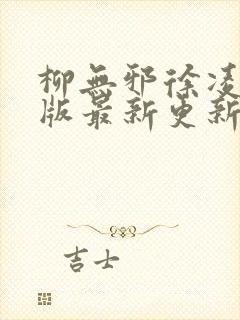 柳無邪徐凌
版最新更新
吉士